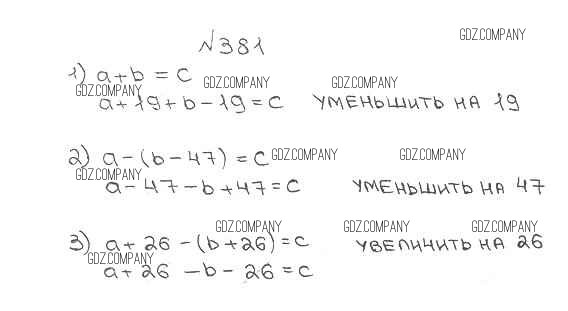 №381
GDZ.COMPANY
1) a+b=c
GDZ.COMPANY GDZ.COMPANY GDZ.COMPANY
a+19+b-19=c УМЕНЬШИТЬ НА 19
2) a-(b-47)=c GDZ.COMPANY GDZ.COMPANY
GDZ.COMPANY
a-47-b+47=c УМЕНЬШИТЬ НА 47
GDZ.COMPANY GDZ.COMPANY GDZ.COMPANY
3) a+26-(b+26)=c УВЕЛИЧИТЬ НА 26
GDZ.COMPANY
a+26-b-26=c